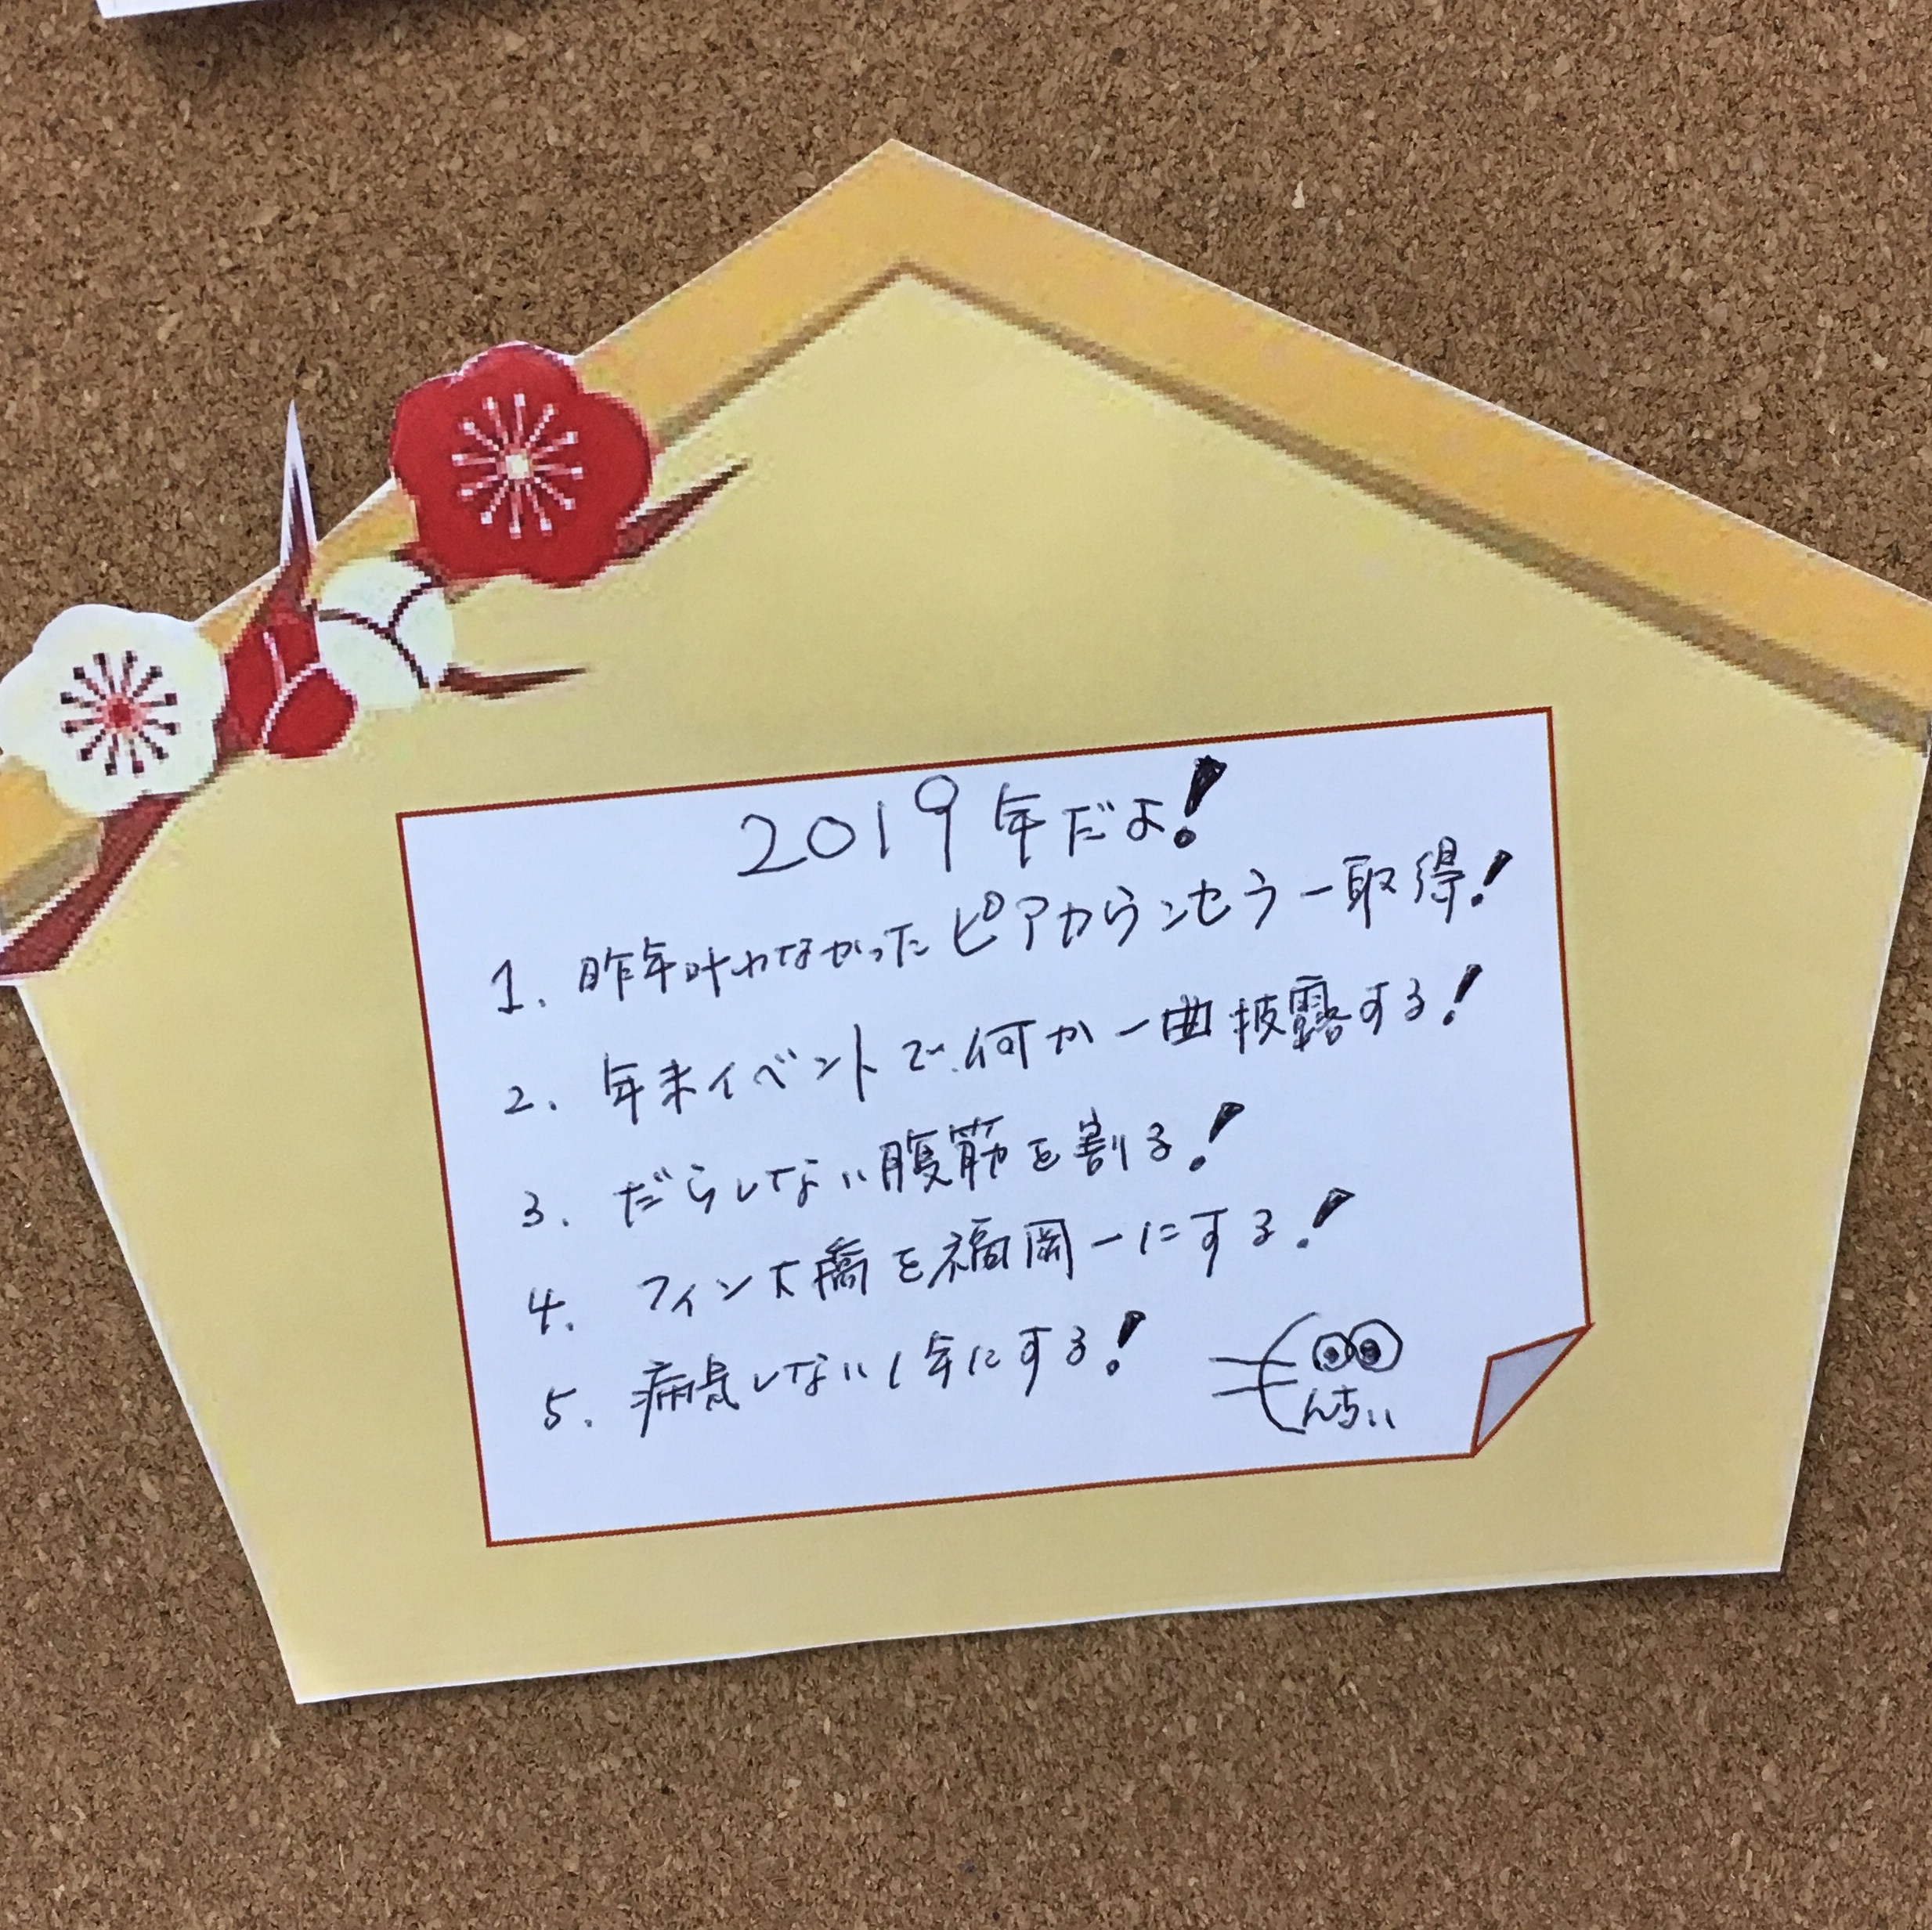 2019年だよ!
1. 昨年叶わなかったピアカウンセラー取得!
2. 年末イベントで何か一曲披露する!
3. だらしない腹筋を割る!
4. フィン大橋を福岡一にする!
5. 病気しない1年にする!
んちぃ